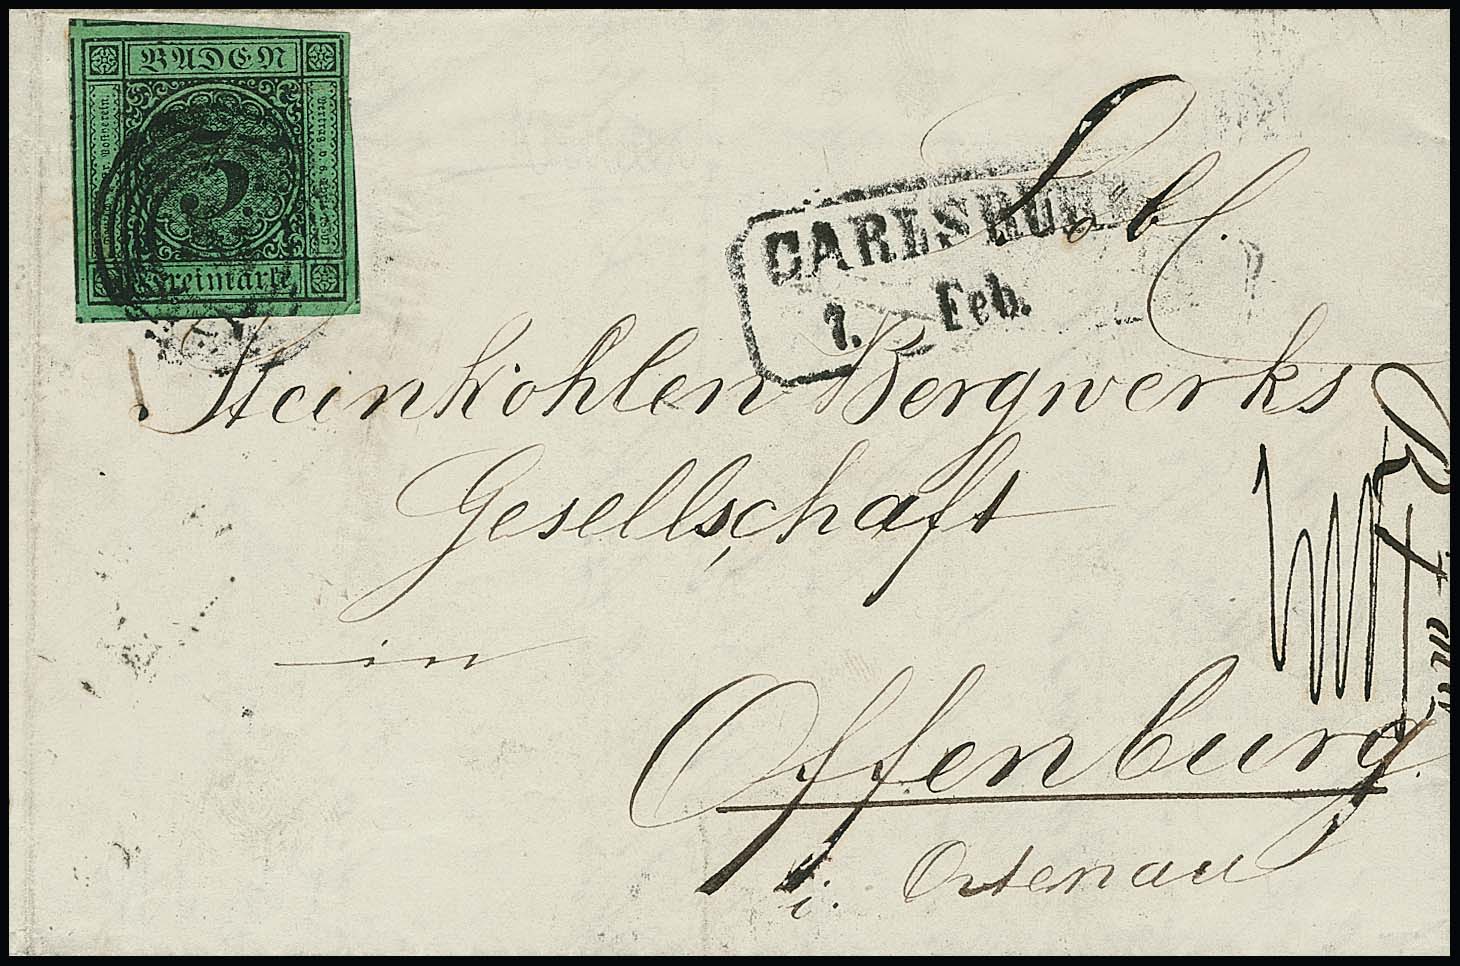 BADEN
3.
Freimarke
Löbl.
CARLSRUHE
7. Feb.
Steinkohlen Bergwerks
Gesellschaft
in
Offenburg
i. Ortenau